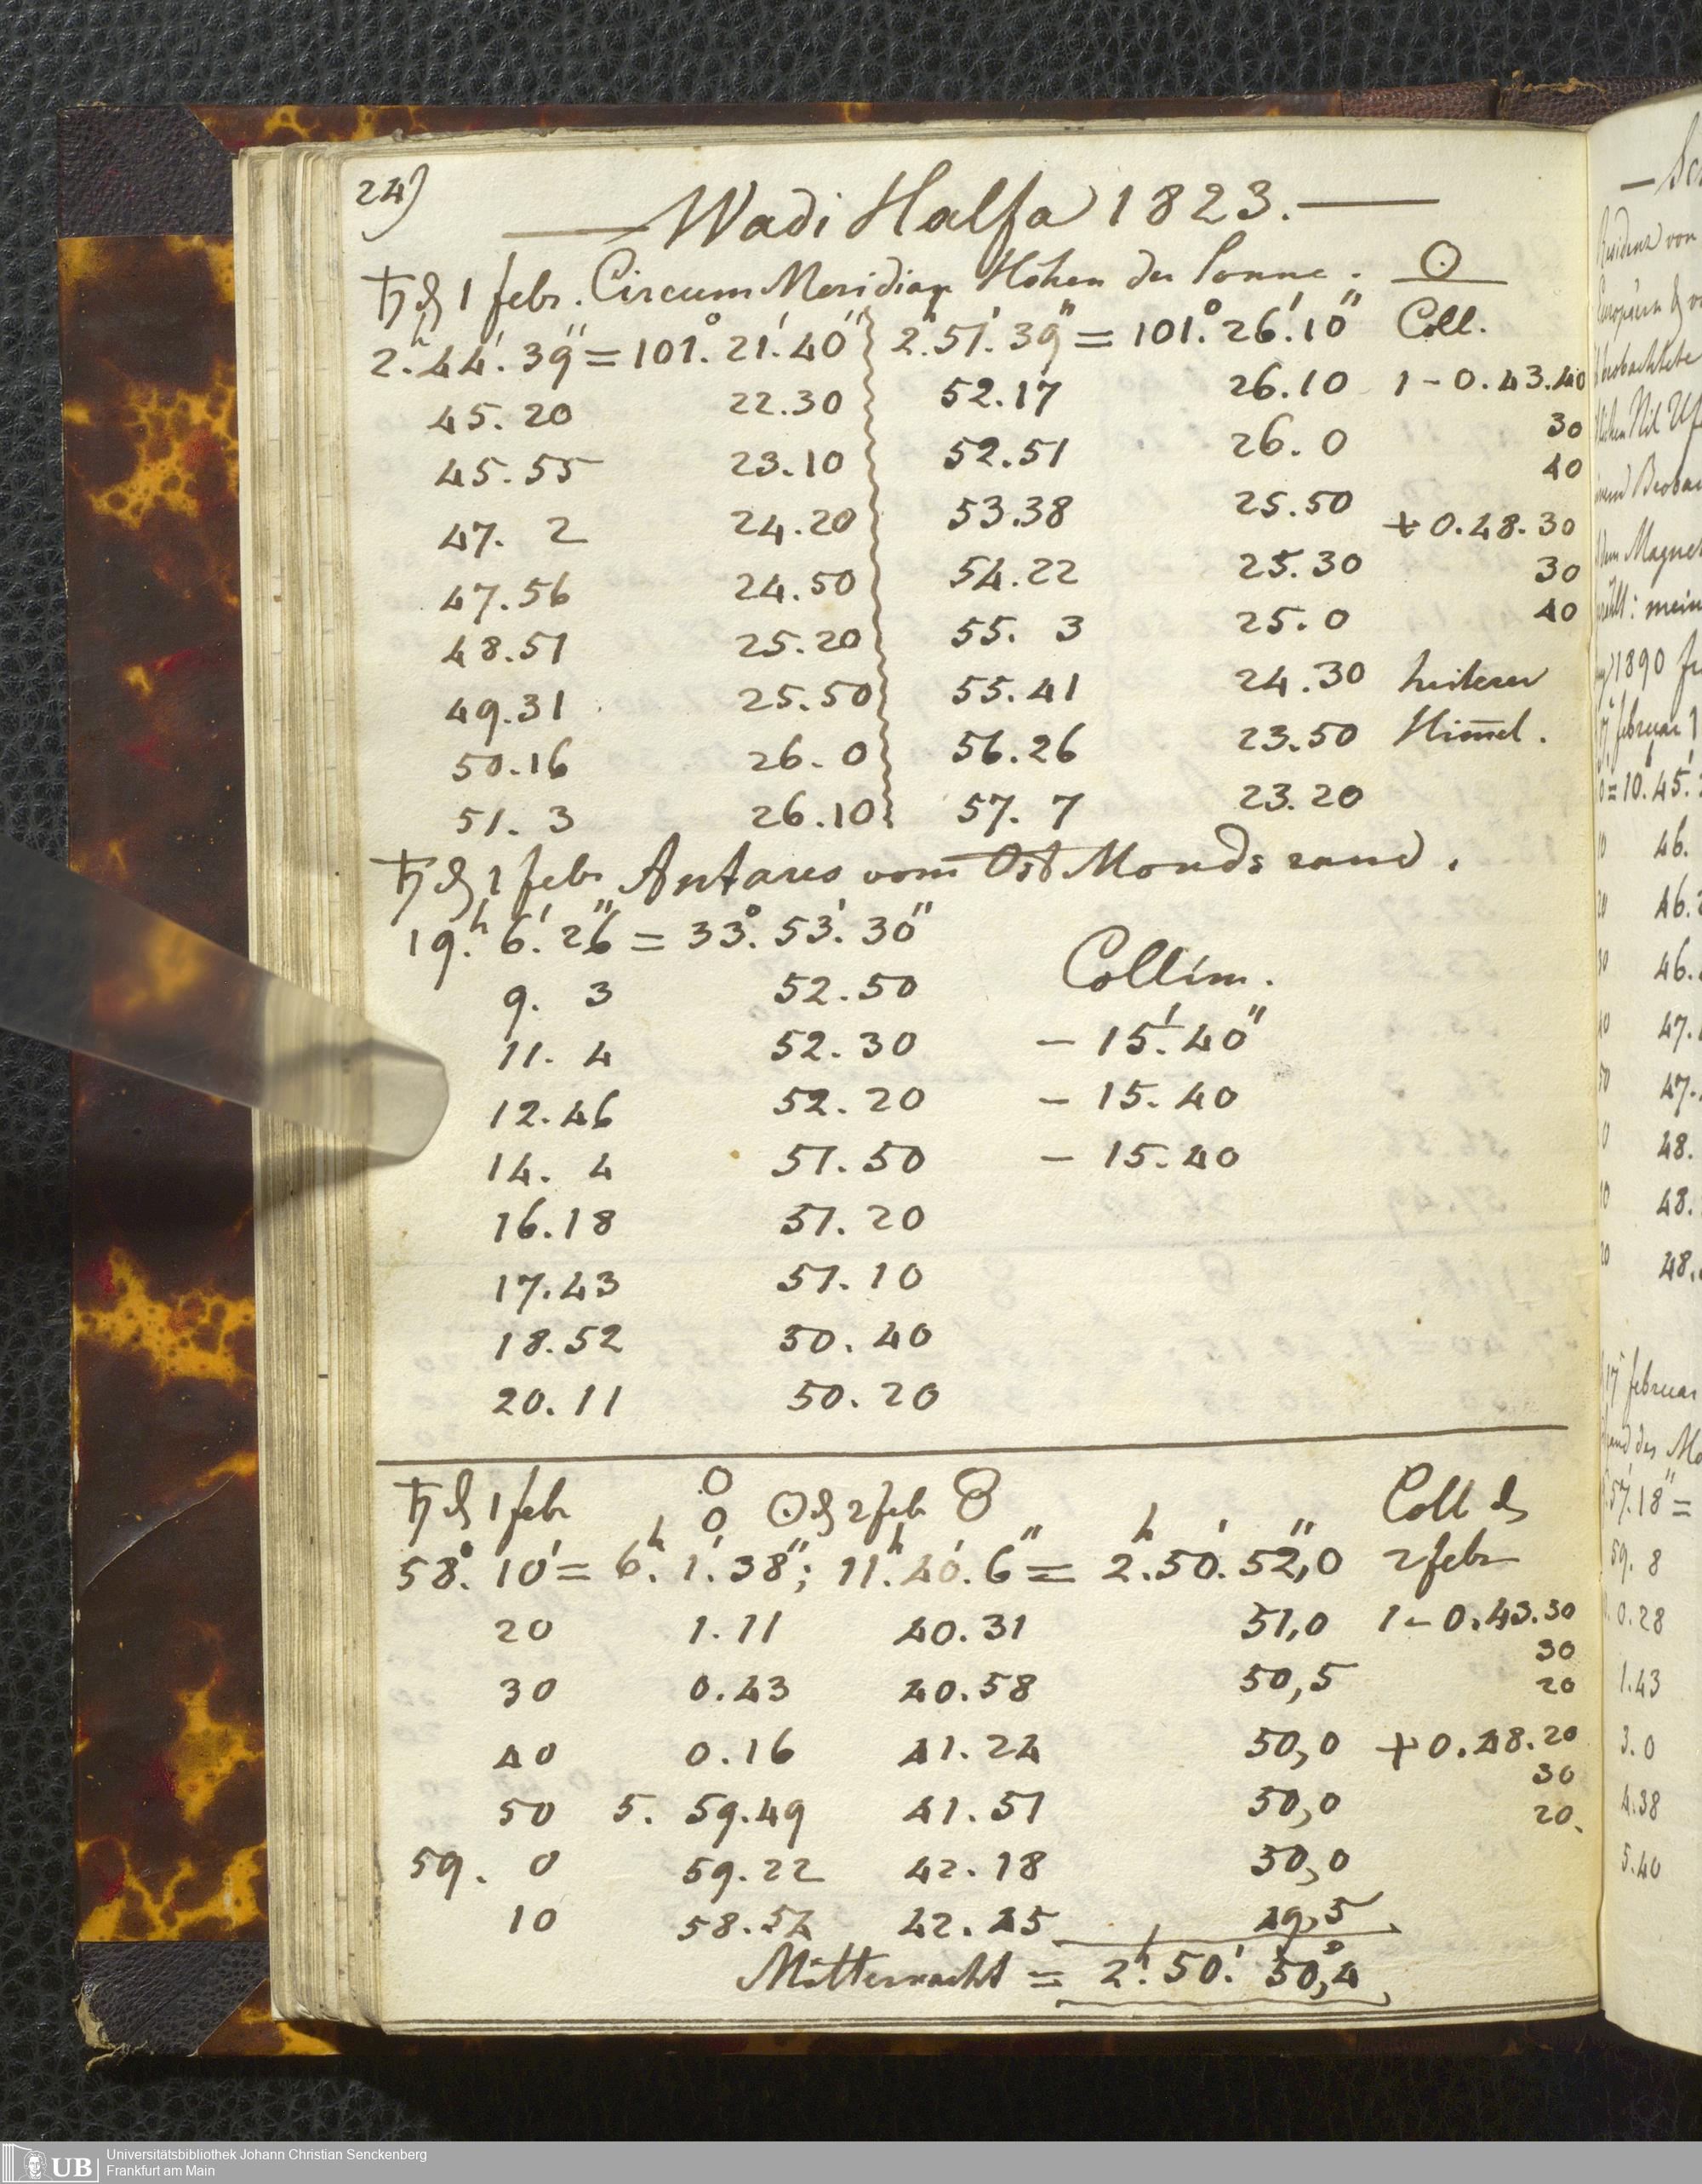 24)
— Wadi Halfa 1823. —
♄ d 1 febr. Circum Meridian Höhen der Sonne. ☉
2.h 44.' 39" = 101.° 21.' 40" 2.h 51.' 39" = 101.° 26.' 10" Coll.
45. 20 22.30 52.17 26.10 1 - 0.43.40
45.55 23.10 52.51 26. 0 30
40
47. 2 24.20 53.38 25.50 + 0.48.30
47.56 24.50 54.22 25.30 30
48.51 25.20 55. 3 25. 0 40
49.31 25.50 55.41 24.30 heiterer
50.16 26. 0 56.26 23.50 Him̅el.
51. 3 26.10 57. 7 23.20
♄ d 1 febr Antares vom Ost Monds rand.
19.h 6.' 26" = 33.° 53.' 30"
9. 3 52.50 Collim.
11. 4 52.30 - 15.' 40"
12.46 52.20 - 15. 40
14. 4 51.50 - 15.40
16.18 51.20
17.43 51.10
18.52 50.40
20.11 50.20
♄ d 1 febr ☉ d 2 feb Coll d
58.° 10' = 6.h 1.' 38"; 11.h 40.' 6" = 2.h 50.' 52,"0 2 febr
20 1.11 40.31 51,0 1 - 0.43.30
30
30 0.43 40.58 50,5 20
40 0.16 41.24 50,0 + 0.48.20
30
50 5. 59.49 41.51 50,0 20.
59. 0 59.22 42.18 50,0
10 58.54 42.45 49,5
Mitternacht = 2.h 50.' 50,4
Residenz von
beobachtete
dem Magnet
1890
februar
= 10.45.
46.
46.
46.
47.
47.
48.
48.
48.
17 februar
57.18" =
59. 8
0.28
1.43
3.0
4.38
5.40
UB Universitätsbibliothek Johann Christian Senckenberg
Frankfurt am Main